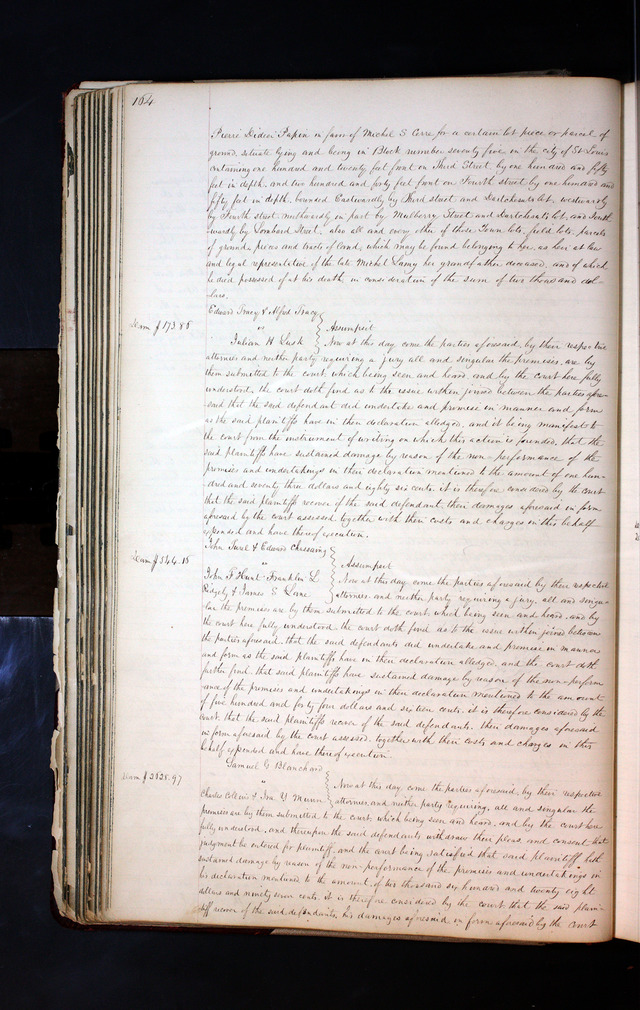 164
Pierre Didier Papin in favor of Michel S Cerre for a certain lot piece or parcel of
ground, situate lying and being in Block number seventy five in the city of St Louis
containing one hundred and twenty feet front on Third Street by one hundred and fifty
feet in depth, and two hundred and forty feet front on Fourth street by one hundred and
fifty feet in depth, bounded Eastwardly by Third street and lot, westwardly
by Fourth street, northwardly in part by Mulberry Street and lot, and South
wardly by Lombard Street, also all and every other of those Town lots, field lots, parcels
of ground, pieces and tracts of land, which may be found belonging to her, as heir at law
and legal representative of the late Michel Lamy her grandfather deceased, and of which
he died possessed of at his death, in consideration of the sum of two thousand dol-
lars.
Edward Tracy & Alfred Tracy
Dam $173.86
vs } Assumpsit
Julian H Lusk } Now at this day come the parties aforesaid, by their respective
attornies and neither party requiring a jury all and singular the premises, are by
them submitted to the court, which being seen and heard and by the court here fully
understood, the court doth find as to the issue within joined between the parties afore-
said that the said defendant did undertake and promise in manner and form
as the said plaintiffs have in their declaration alledged, and it being manifest to
the court from the instrument of writing on which this action is founded, that the
said plaintiffs have sustained damage by reason of the non-performance of the
promises and undertakings in their declaration mentioned to the amount of one hun-
dred and seventy three dollars and eighty six cents, it is therefore considered by the court
that the said plaintiffs recover of the said defendant, their damages aforesaid in form
aforesaid by the court assessed, together with their costs and charges in this behalf
expended and have thereof execution.
John & Edward Chessaing
Dam $544.16
" } Assumpsit
John F Hunt Franklin L } Now at this day come the parties aforesaid by their respective
Ridgely & James S Lane } attornies, and neither party requiring a jury, all and singu-
lar the premises are by them submitted to the court, which being seen and heard, and by
the court here fully understood, the court doth find as to the issue within joined between
the parties aforesaid, that the said defendants did undertake and promise in manner
and form as the said plaintiffs have in their declaration alledged, and the court doth
further find, that said plaintiffs have sustained damage by reason of the non-perform
ance of the promises and undertakings in their declaration mentioned to the amount
of five hundred and forty four dollars and sixteen cents, it is therefore considered by the
court, that the said plaintiffs recover of the said defendants, their damages aforesaid
in form aforesaid by the court assessed, together with their costs and charges in this
behalf expended and have thereof execution.
Samuel G Blanchard
Dam $ .97
" } Now at this day, come the parties aforesaid, by their respective
Charles & Y Munn } attornies, and neither party requiring, all and singular the
premises are by them submitted to the court, which being seen and heard, and by the court here
fully understood, and thereupon the said defendants withdraw their pleas, and consent that
judgment be entered for plaintiff, and the court being satisfied that said plaintiff hath
sustained damage by reason of the non-performance of the promises and undertakings in
his declaration mentioned to the amount of thousand six hundred and twenty eight
dollars and ninety seven cents. it is therefore considered by the court that the said plain-
tiff recover of the said defendants, his damages aforesaid in form aforesaid by the court